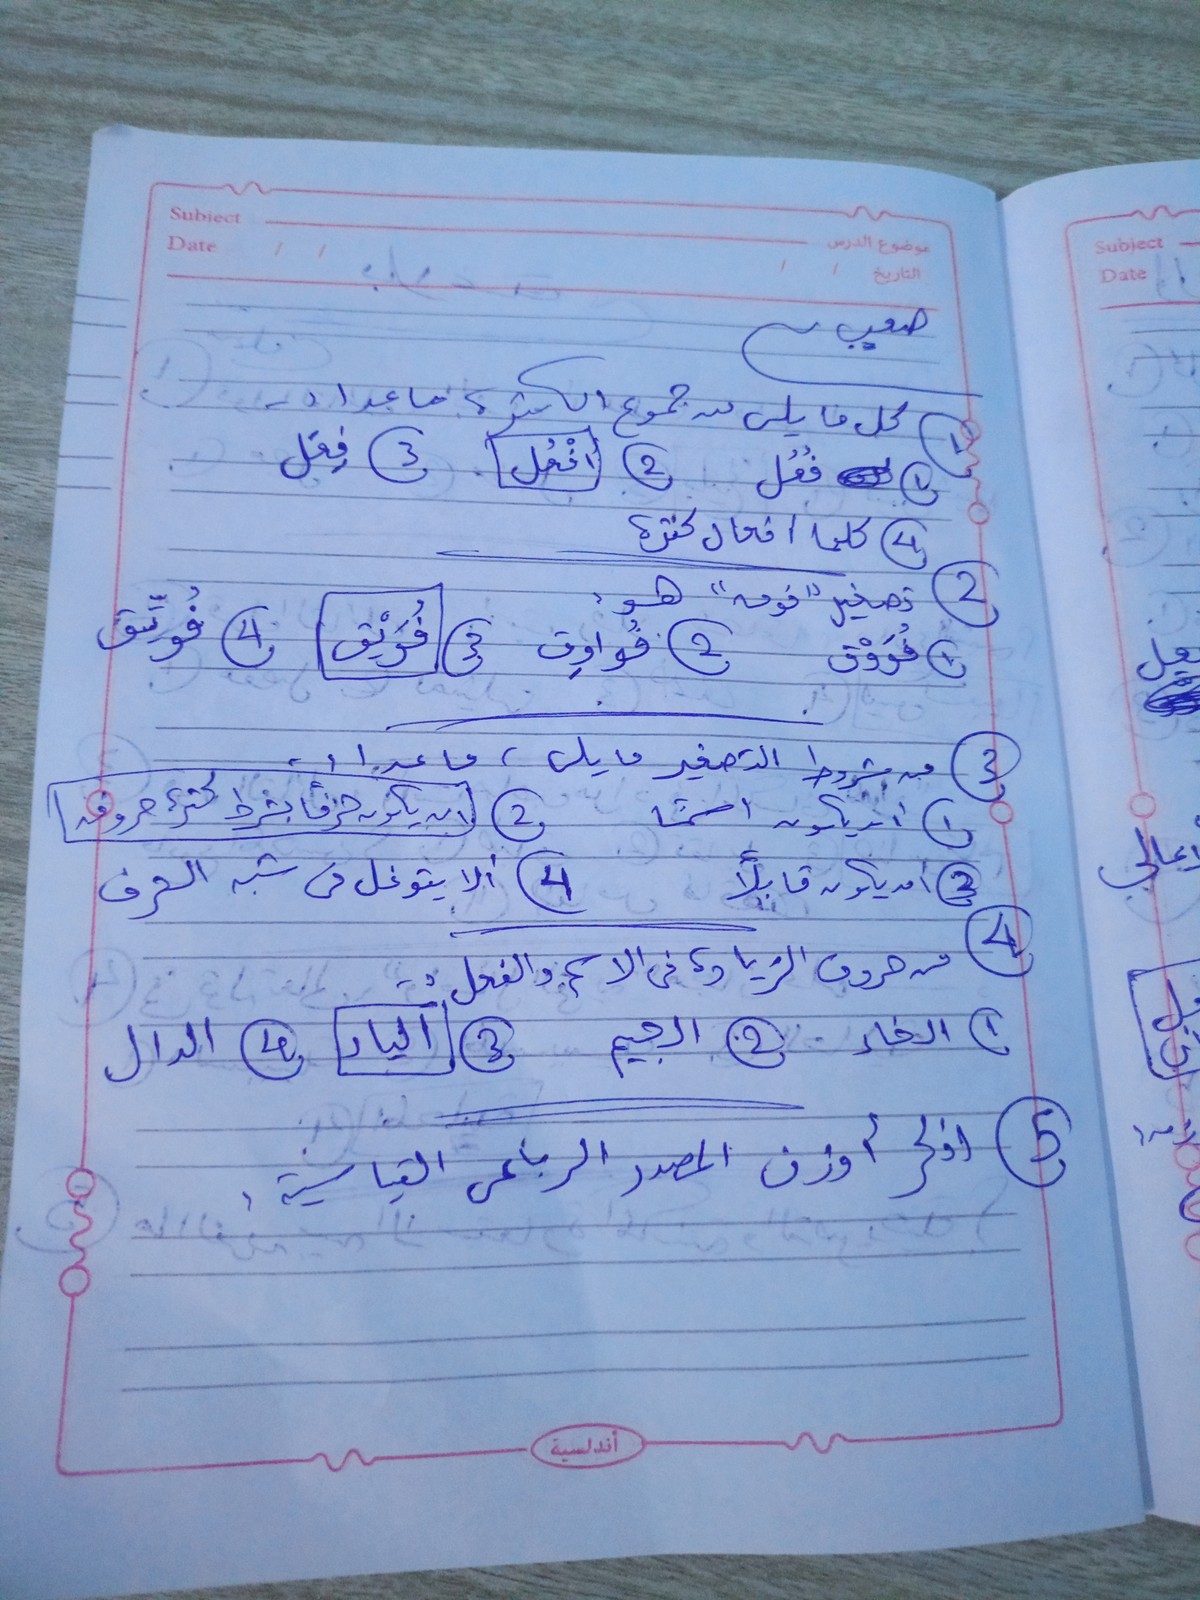 Subject موضوع الدرس
Date / / / / التاريخ
صعب
1 كل ما يلى من جموع الكثرة ما عدا :-
1 فُعُل 2 افْعُل 3 فِعَل
4 كلها افعال كثرة
2 تصغير "فوق" هو :
1 فُوَوْق 2 فُواوِق 3 فُوَيْق 4 فُوَيِّق
3 من شروط التصغير ما يلى ، ما عدا :-
1 أن يكون اسمًا 2 ان يكون حرفًا بشرط كثرة حروفه
3 أن يكون قابلًا 4 ألا يتوغل فى شبه الحرف
4 من حروف الزيادة فى الاسم والفعل :-
1 الخاء 2 الجيم 3 الياء 4 الدال
5 اذكر أوزن المصدر الرباعى القياسية :
أندلسية
Subject
Date